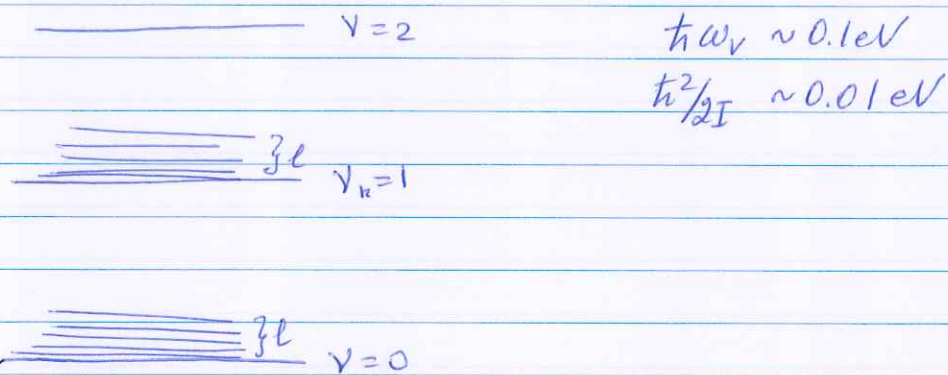 ν = 2
ħω_ν ~ 0.1 eV
ħ²/2I ~ 0.01 eV
} l
ν_n = 1
} l
ν = 0